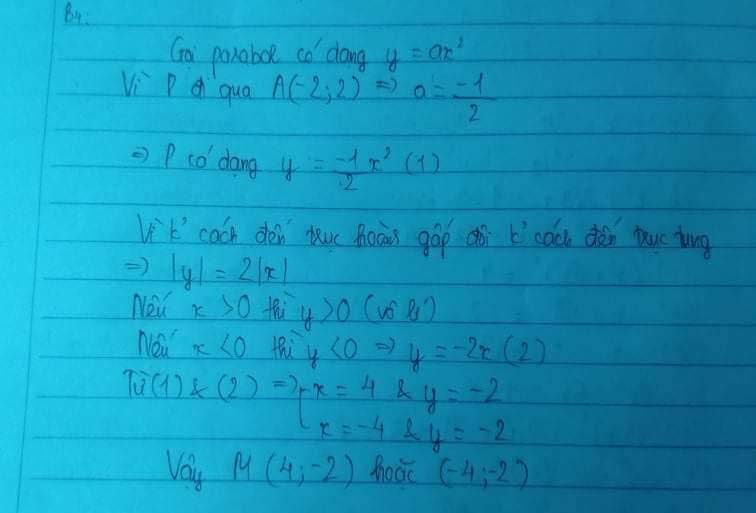 B4:
Gọi parabol có dạng y = ax²
Vì P đi qua A(-2;2) => a = -1/2
=> P có dạng y = -1/2 x² (1)
Vì k' cách đến trục hoàng gấp đôi k' cách đến trục tung
=> |y| = 2|x|
Nếu x >0 thì y >0 (vô lí)
Nếu x <0 thì y <0 => y = -2x (2)
Từ (1) & (2) => x = 4 & y = -2
x = -4 & y = -2
Vậy M (4;-2) hoặc (-4;-2)